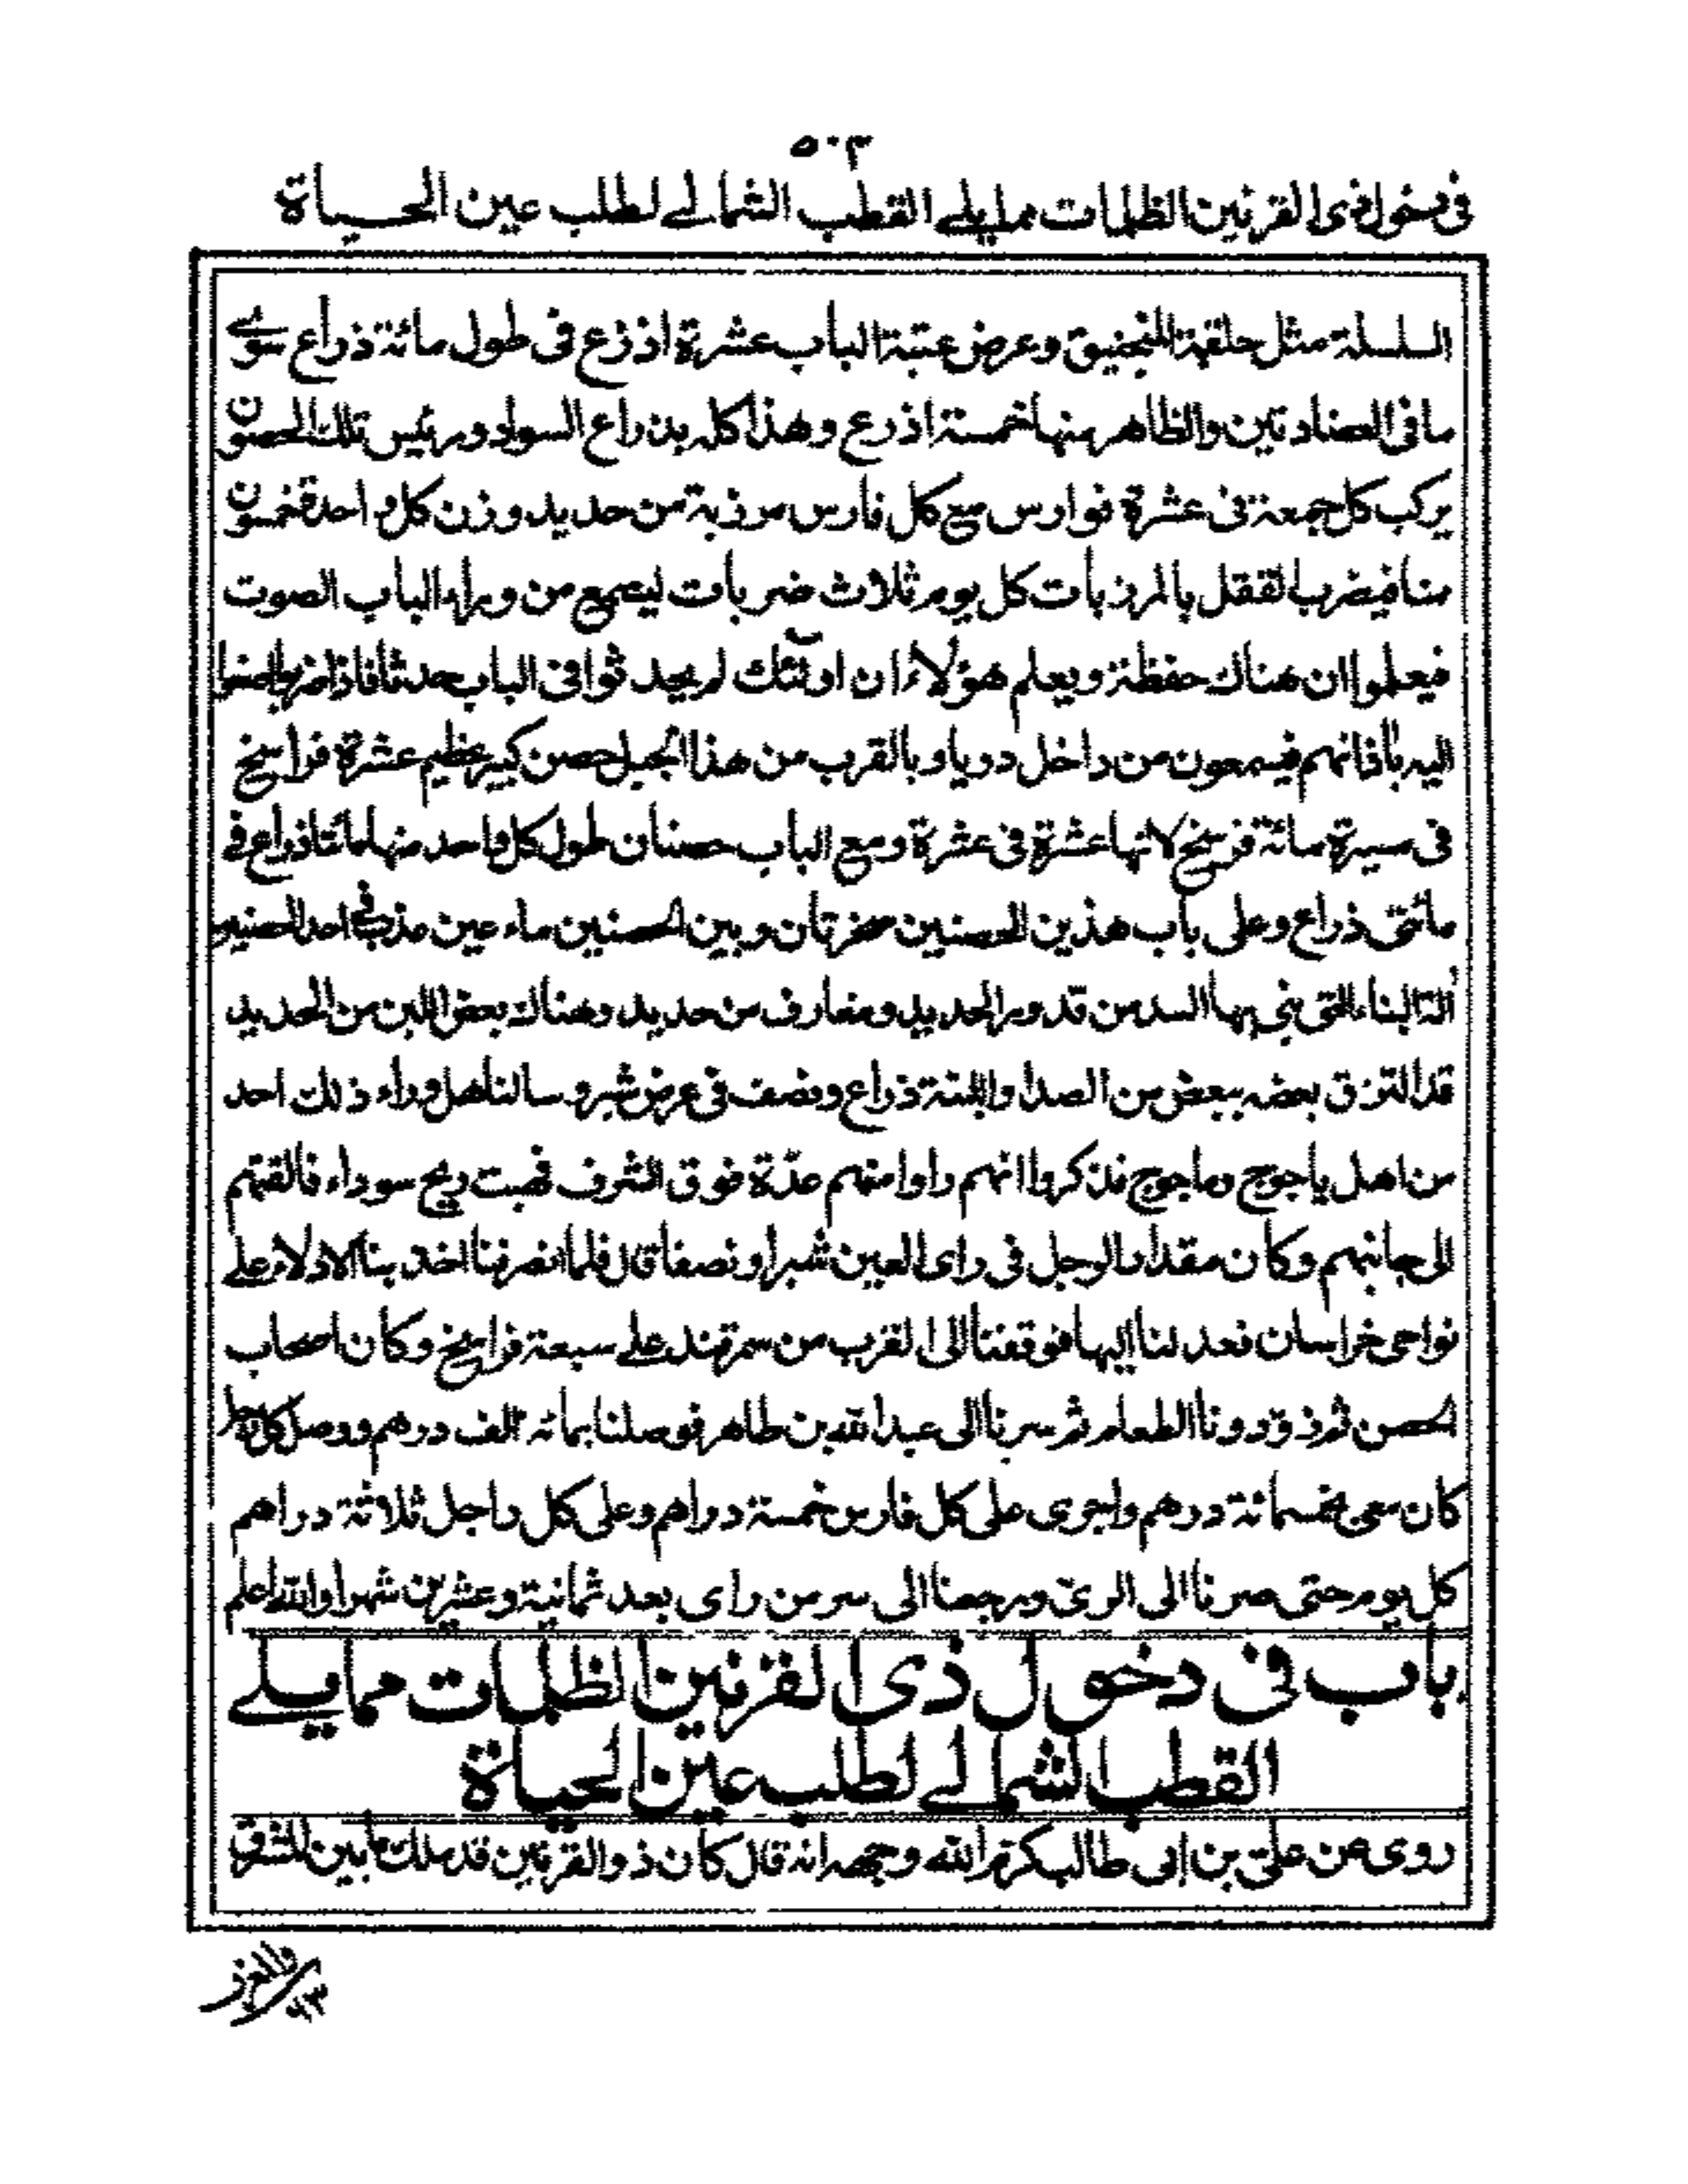 ٥٠٣
فى دخول ذى القرنين الظلمات مما يلے القطب الشمالے لطلب عين الحياة
السلسلة مثل حلقة المنجنيق وعرض عتبة الباب عشرة اذرع فى طول مائة ذراع سوى
ما فى العضادتين والظاهر منها خمسة اذرع وهذا كله بذراع السواد ورئيس تلك الحصون
يركب كل جمعة فى عشرة فوارس مع كل فارس مرزبة من حديد وزن كل واحدة خمسون
منا فيضرب القفل بالمرزبات كل يوم ثلاث ضربات ليسمع من وراء الباب الصوت
فيعلموا ان هناك حفظة ويعلم هؤلاء ان اولٓئك لم يجد ثوا فى الباب حدثا فاذا ضربوا
اليه باذانهم فيسمعون من داخل دويا وبالقرب من هذا الجبل حصن كبير عظيم عشرة فراسخ
فى مسيرة مائة فرسخ لانها عشرة فى عشرة ومع الباب حصنان طول كل واحد منهما مائتا ذراع فى
مائتى ذراع وعلى باب هذين الحصنين صخرتان وبين الحصنين ماء عين عذب فى احد الحصنين
ألة البناء التى بنى بها السد من قدور الحديد ومغارف من حديد وهناك بعض اللبن من الحديد
قد التزق بعضه ببعض من الصدا واللبنة ذراع ونصف فى عرض شبر وسالنا هل وراء ذلك احد
من اهل ياجوج وماجوج فذكروا انهم راوا منهم عدّة فوق الشرف فهبت ريح سوداء فالقتهم
الى جانبهم وكان مقدار الرجل فى راى العين شبرا ونصفا قال فلما انصرفنا اخذ بنا الادلاء على
نواحى خراسان فعدلنا اليها فوقفنا الى القرب من سمرقند على سبعة فراسخ وكان اصحاب
الحصن ثم زودونا الطعام ثم سرنا الى عبد الله بن طاهر فوصلنا بمائة الف درهم ووصل كل رجل
كان معى بخمسمائة درهم واجرى على كل فارس خمسة دراهم وعلى كل راجل ثلاثة دراهم
كل يوم حتى صرنا الى الرىّ ورجعنا الى سر من راى بعد ثمانية وعشرين شهرا والله اعلم
باب فى دخول ذى القرنين الظلمات مما يلے
القطب الشمالے لطلب عين الحياة
روى عن علىّ بن ابى طالب كرم الله وجهه انه قال كان ذو القرنين قد ملك ما بين المشرق
والمغرب